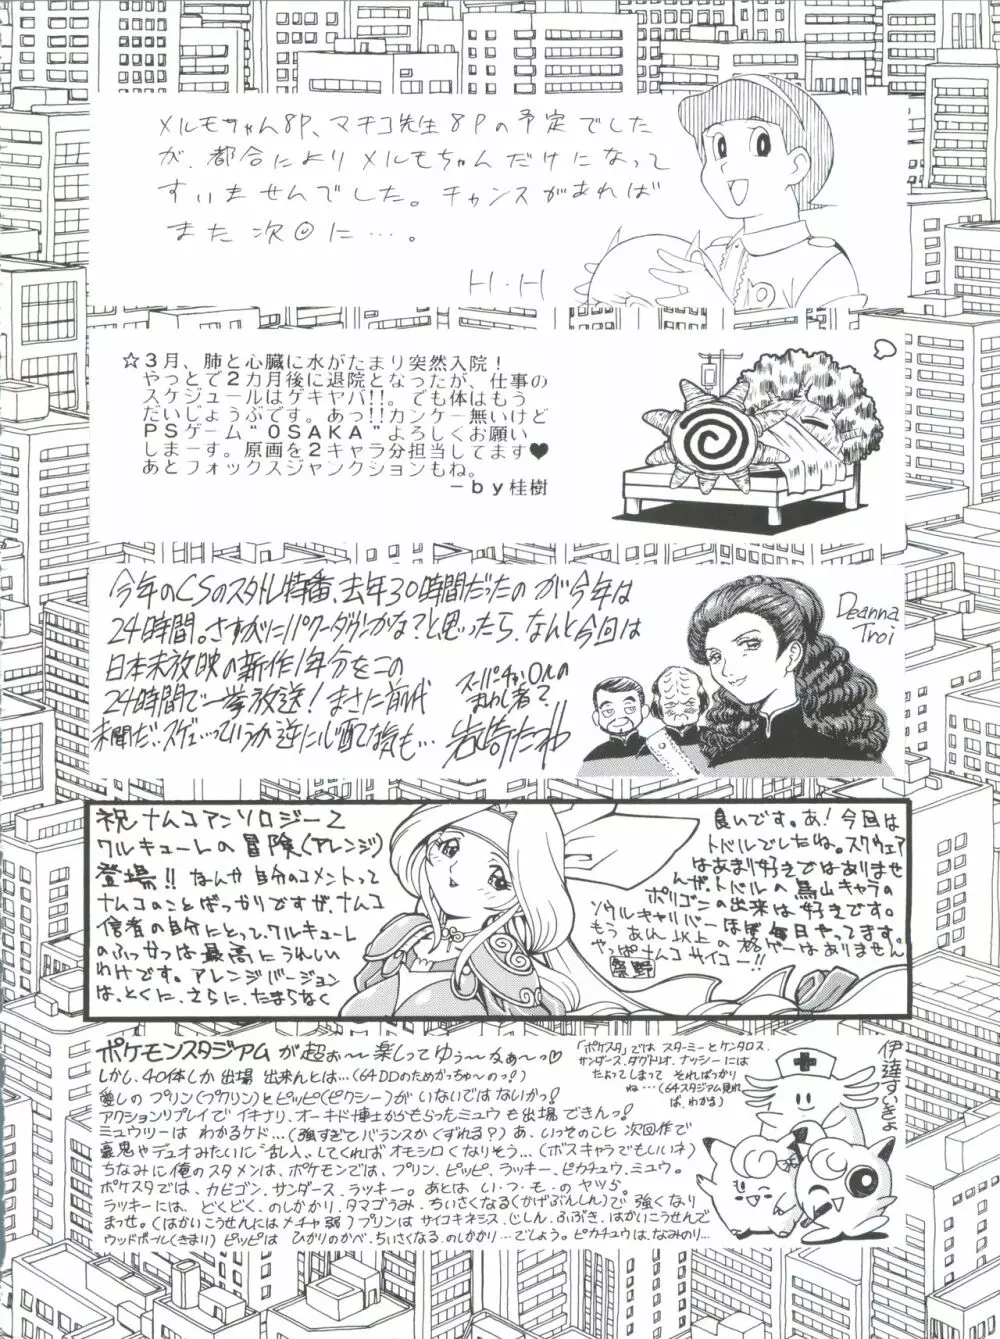 メルモちゃん8P、マチコ先生8Pの予定でした
が、都合によりメルモちゃんだけになって
すいませんでした。チャンスがあれば
また次回に…。
H・H
☆3月、肺と心臓に水がたまり突然入院!
やっとで2カ月後に退院となったが、仕事の
スケジュールはゲキヤバ!!。でも体はもう
だいじょうぶです。あっ!!カンケー無いけど
PSゲーム“OSAKA”よろしくお願い
しまーす。原画を2キャラ分担当してます♥
あとフォックスジャンクションもね。
－by桂樹
今年のCSのスタトレ特番、去年30時間だったのが今年は
24時間。さすがにパワーダウンかな?と思ったら、なんと今回は
日本未放映の新作1年分をこの
24時間で一挙放送!まさに前代
未聞だ、スゲェ…っていうか逆に心配な気も…
スーパーチャンネルの
まわし者?
岩崎たつや
Deanna
Troi
祝ナムコアンソロジー2
ワルキューレの冒険(アレンジ)
登場!!なんか自分のコメントって
ナムコのことばっかりですが、ナムコ
信者の自分にとって、ワルキューレ
のふっかつは最高にうれしい
わけです。アレンジバージョン
は、とくに、さらに、たまらなく
良いです。あ!今回は
トバルでしたね。スクウェア
はあまり好きではありませ
んが、トバルの鳥山キャラの
ポリゴンの出来は好きです。
ソウルキャリバーはほぼ毎日やってます。
もうあれ以上の格ゲーはありません
やっぱナムコサイコー!!
ポケモンスタジアムが超ぉ～楽しってゆぅ～なぁ～っ♡
しかし、40体しか出場出来んとは…(64DDのためがっちゅ～のっ!)
愛しのプリン(プクリン)とピッピ(ピクシー)がいないではないかっ!
アクションリプレイでイキナリ、オーキド博士からもらったミュウも出場できんっ!
ミュウツーはわかるケド…(強すぎてバランスがくずれる?)あ、いっそのこと次回作で
豪鬼やデュオみたいに乱入…してくればオモシロくなりそう…(ボスキャラでもしいいネ)
ちなみに俺のスタメンは、ポケモンでは、プリン、ピッピ、ラッキー、ピカチュウ、ミュウ。
ポケスタでは、カビゴン、サンダース、ラッキー。あとはい・つ・も・のヤツら。
ラッキーには、どくどく、のしかかり、タマゴうみ、ちいさくなる(かげぶんしん)で強くなり
まっせ。(はかいこうせんにはメチャ弱)プリンはサイコキネシス、じしん、ふぶき、はかいこうせんで
ウッドボール(きまり)ピッピはひかりのかべ、ちいさくなる、のしかかり…でしょう。ピカチュウは、なみのり…
「ポケスタ」ではスターミーとケンタロス、
サンダース、ダグトリオ、ナッシーには
たよってしまってそればっかり
ね…(64スタジアム見れ
ば、わかる)
伊達すいきょ